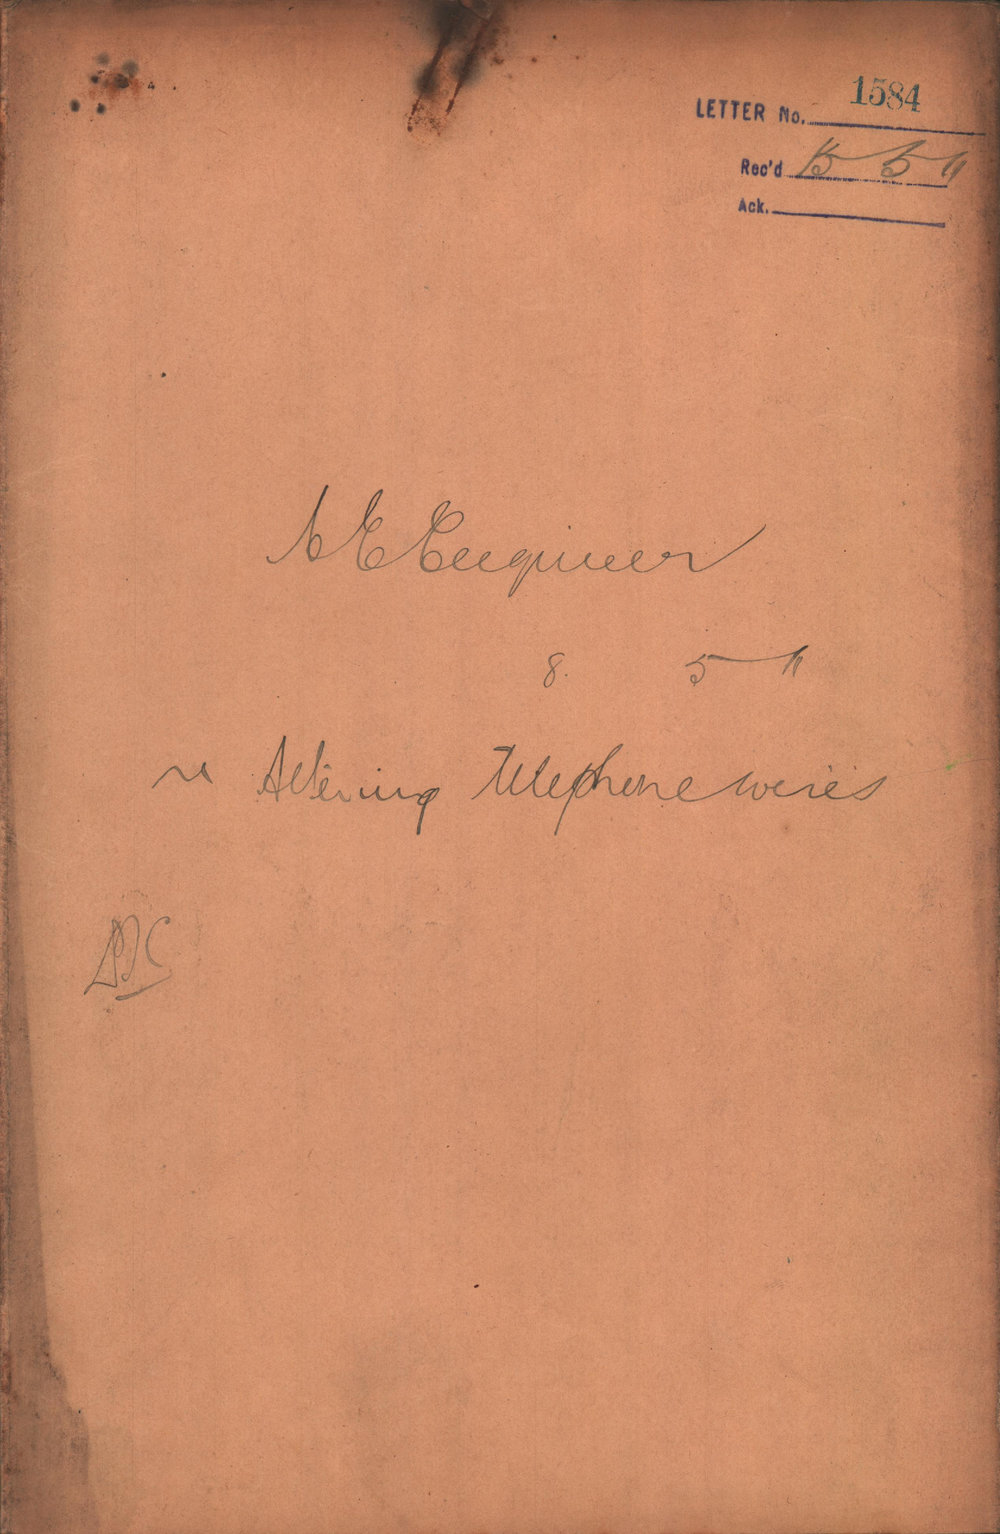 LETTER No. 1584
Rec'd 15 5 11
Ack.
C E Engineer
8. 5 11
re Altering Telephone wires